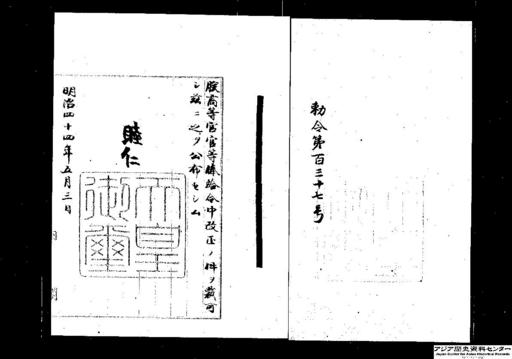 勅令第百三十七号
朕高等官官等俸給令中改正ノ件ヲ裁可
シ茲ニ之ヲ公布セシム
睦仁
天皇御璽
明治四十四年五月三日
内閣
アジア歴史資料センター
Japan Center for Asian Historical Records